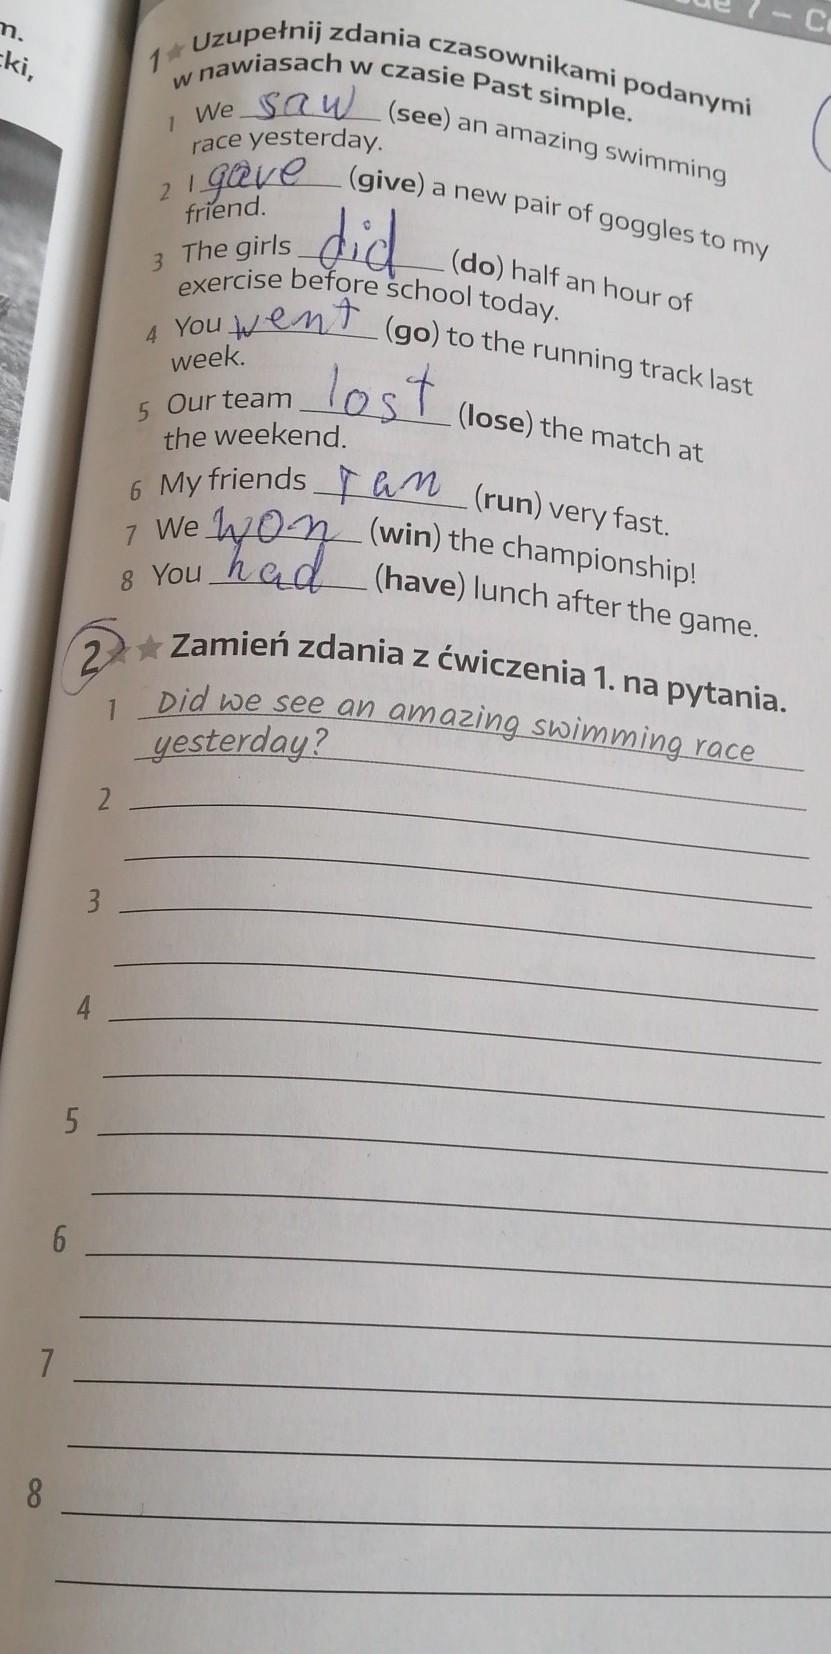 m.
ki,
7 – C
1 Uzupełnij zdania czasownikami podanymi
w nawiasach w czasie Past simple.
1 We saw (see) an amazing swimming
race yesterday.
2 I gave (give) a new pair of goggles to my
friend.
3 The girls did (do) half an hour of
exercise before school today.
4 You went (go) to the running track last
week.
5 Our team lost (lose) the match at
the weekend.
6 My friends ran (run) very fast.
7 We won (win) the championship!
8 You had (have) lunch after the game.
2 Zamień zdania z ćwiczenia 1. na pytania.
1 Did we see an amazing swimming race
yesterday?
2
3
4
5
6
7
8